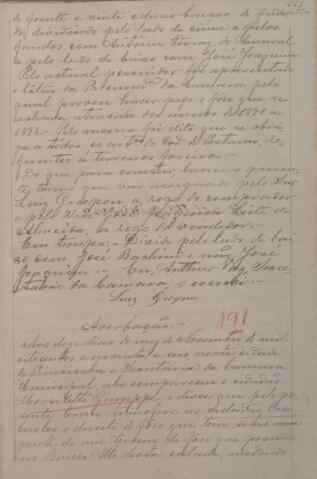 de frente e vinte e duas braças de fundo
dos dividindo pelo lado de cima e pelos
fundos com Antonio Ferraz de
e pelo lado de baixo com José Joaquim
Pelo actual possuidor foi apresentado
o talão da da Camara, pelo
qual provou haver pago o foro que se
achava atrasado dos annos de 1891 a
1896. Pelo mesmo foi dito que se obri
ga a todos os art. do Cod. de Posturas, re
ferentes á terrenos foreiros
Do que para constar, lavrei o presen
te termo que vae assignado pelo
Luiz a rogo do comprador
e pelo Joaquim Leite de
Almeida, a rogo do vendedor.
Em tempo. Divide pelo lado de bai
xo com José e não José
Joaquim. Eu, Arthur Vaz, Secre
tario da Camara, o escrevi.
Luiz
191
Aos doze dias do mez de Novembro de mil
oitocentos e noventa e seis, nesta cidade
de Piracicaba e Secretaria da Camara
Municipal, ahi compareceu o cidadão
Giuseppe, e disse que pelo pre
sente termo transfere ao cidadão
o direito de foro que tem sobre uma
parte de um terreno de foro que possue
no Bairro Alto desta cidade, medindo